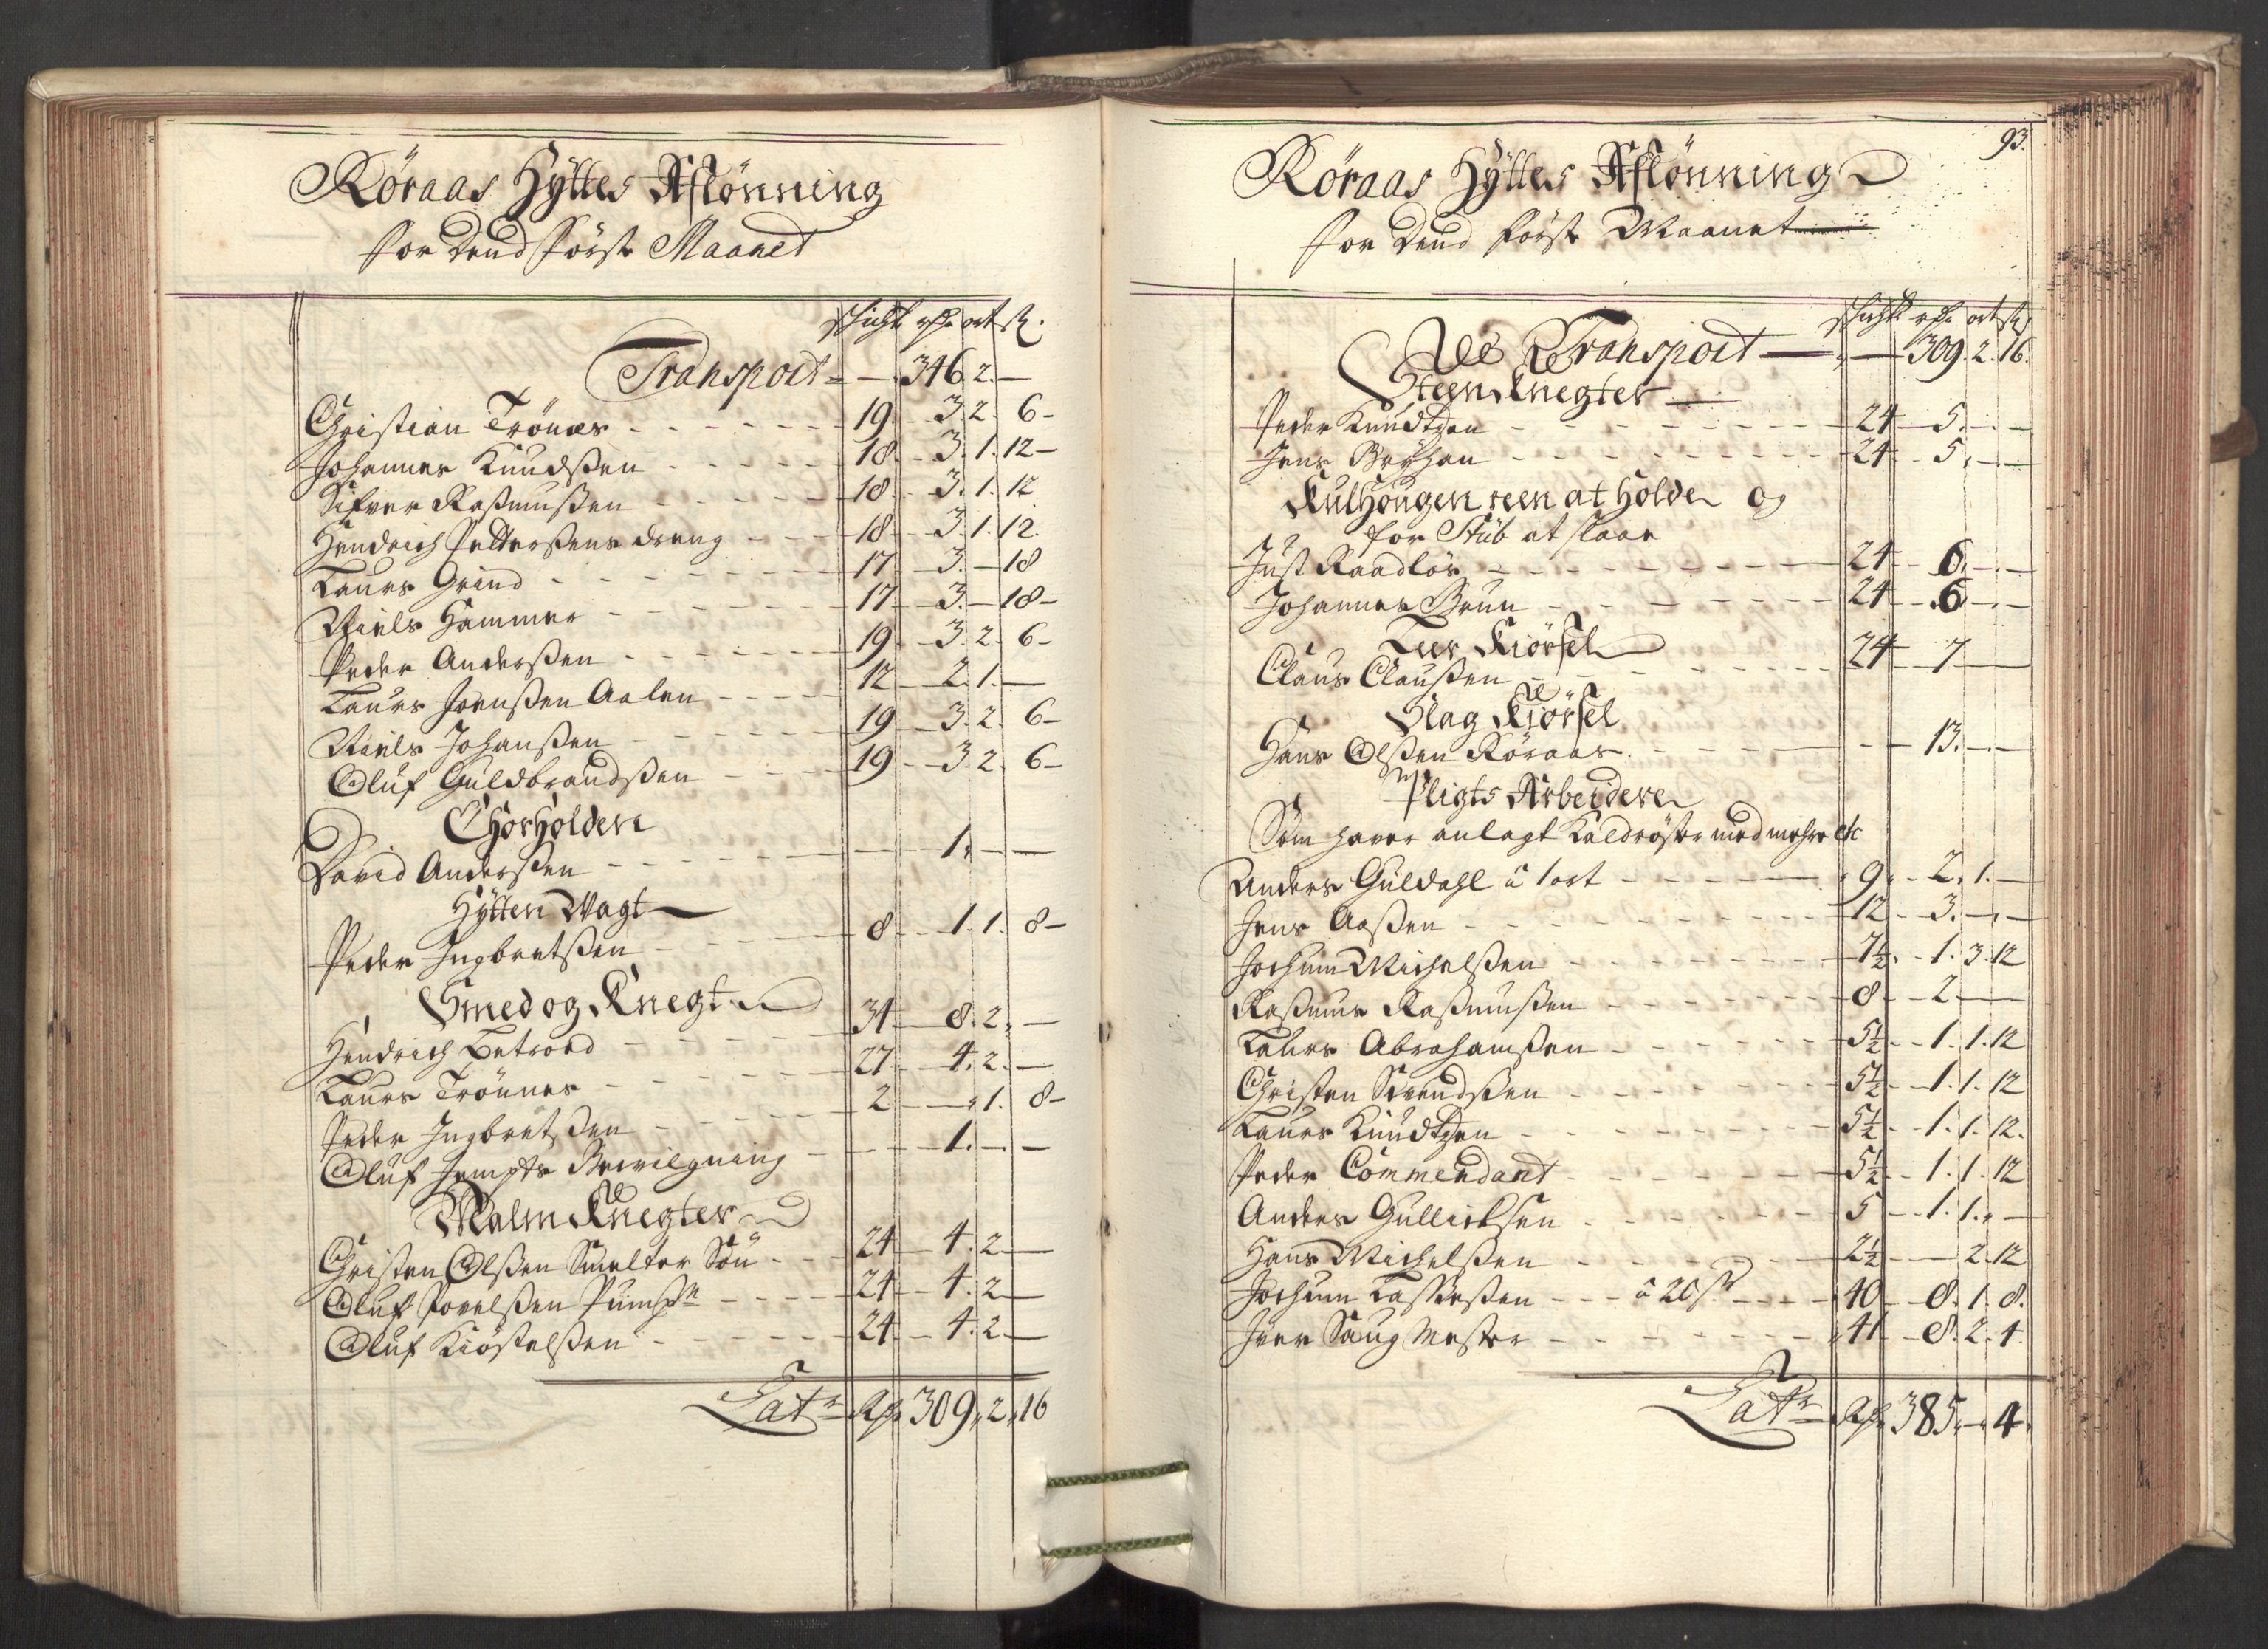 Röraas Hÿttes Aflönning
for dend förste Maanet
schicht rdr ort sk.
Transport - - 346 2 -
Christian Trönæs - - - 19 - 3. 2. 6 -
Johannes Knudsßen - - - 18 - 3. 1. 12 -
Sifver Raßmusßen - - - 18 - 3. 1. 12
Hendrich Pettersßens dreng - - - 18 - 3. 1. 12.
Laurs Grind - - - 17 - 3. - 18
Niels Hammer - - - 17 - 3. - 18 -
Peder Andersßen - - - 19 - 3. 2. 6 -
Laurs Joensßen Aalen - - - 12 - 2. 1. -
Niels Johansßen - - - 19 - 3. 2. 6 -
Oluf Guldbrandsßen - - - 19 - 3. 2. 6 -
Chorholder
David Andersßen - - - 1. - -
Hÿtten Wagt
Peder Ingbretsßen - - - 8 - 1. 1. 8 -
Smed og Knegte
Hendrich - - - 34 - 8. 2. -
Laurs Trönnes - - - 27 - 4. 2. -
Peder Ingbretsßen - - - 2 - - 1. 8 -
Oluf Bewilgning - - - 1. - -
Malm Knegter
Christen Olsßen Smelter Sön - - 24 - 4. 2 -
Oluf Povelsßen - - - 24 - 4. 2 -
Oluf Kiöstelsßen - - - 24 - 4. 2 -
Latr Rdr 309. 2. 16
93.
Röraas Hÿttes Aflönning
for dend förste Maanet
schicht rdr ort sk
Transport - - 309. 2. 16.
Steen Knegter
Peder Knudtzen - - - 24 - 5. - -
Jens Brÿhan - - - 24 - 5. - -
Kulhougen reen at holde og
for Stüb at slaae
Just Raadlös - - - 24 - 6. - -
Johannes Brun - - - 24 - 6. - -
Leer Kiörsel
Claus Clausßen - - - 24 - 7 -
Slag Kiörsel
Hans Olsßen Röraas - - - 13. - -
Pligts Arbeidere
Som haver anlagt Kaldröster med mehre etc
Anders Guldahl á 1 ort - - - 9. - 2. 1. -
Jens Aasßen - - - 12 - 3. - -
Jochum Michelsßen - - - 7½. - 1. 3. 12
Rasmus Rasmusßen - - - 8 - 2 -
Laurs Abrahamsßen - - - 5½ - 1. 1. 12
Christen Svendsßen - - - 5½ - 1. 1. 12
Laurs Knudtzen - - - 5½ - 1. 1. 12.
Peder Commendant - - - 5½ - 1. 1. 12
Anders Gullichsen - - - 5 - 1. 1. -
Hans Michelsßen - - - 2½ - - 2. 12
Jochum - - - á 20 sk - - - 40 - 8. 1. 8.
Iver Saug Mester - - - 41 - 8. 2. 4
Latr Rdr 385. - 4.